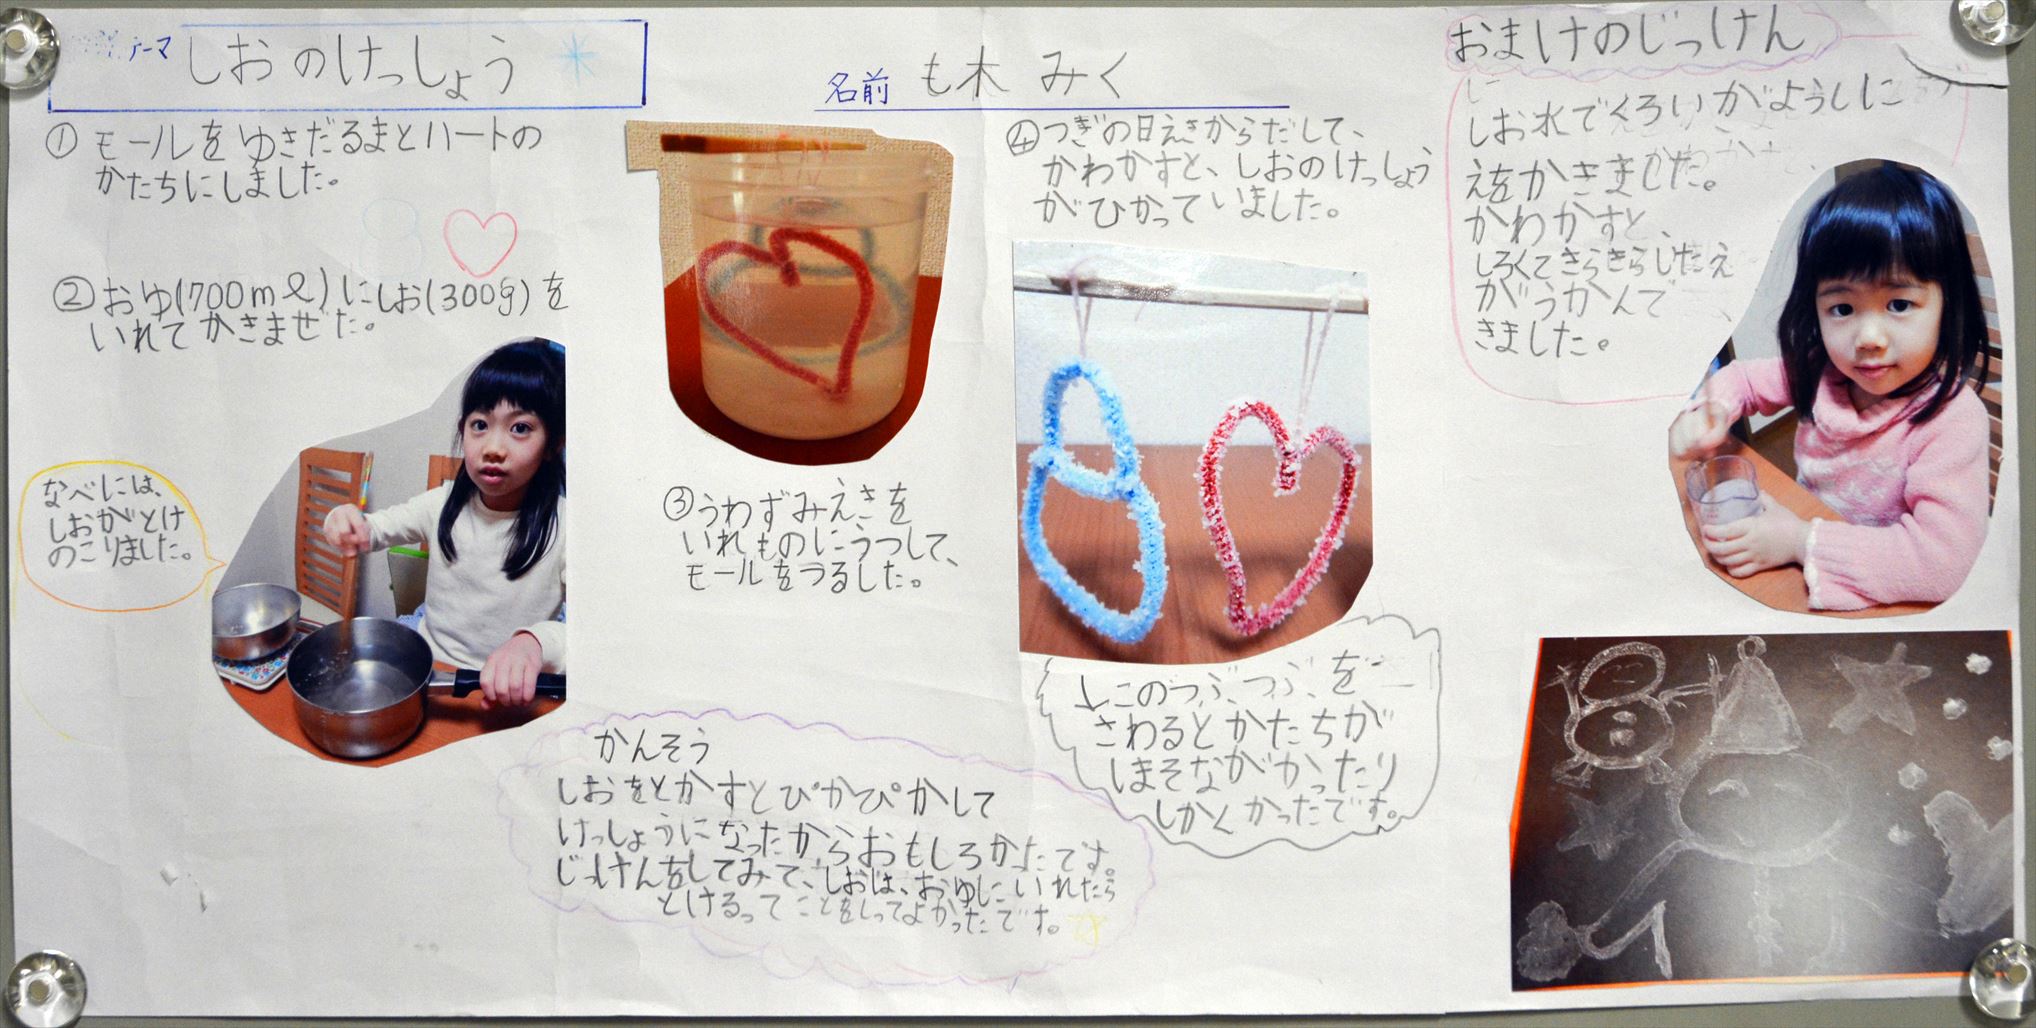 テーマ しおのけっしょう
名前 も木 みく
①モールをゆきだるまとハートの
かたちにしました。
②おゆ(700mℓ)にしお(300g)を
いれてかきませだ。
なべには、
しおがとけ
のこりました。
③うわずみえきを
いれものにうつして、
モールをつるした。
④つぎの日えきからだして、
かわかすと、しおのけっしょう
がひかっていました。
このつぶつぶを
さわるとかたちが
しかくかったです。
かんそう
しおをとかすとぴかぴかして
けっしょうになったからおもしろかったです。
じっけんをしてみて、しおは、おゆにいれたら
とけるってことをしってよかったです。
おまけのじっけん
しお水でくろいがようしに
えをかきました。
かわかすと、
しろくてきらきらしたえ
がうかんで
きました。